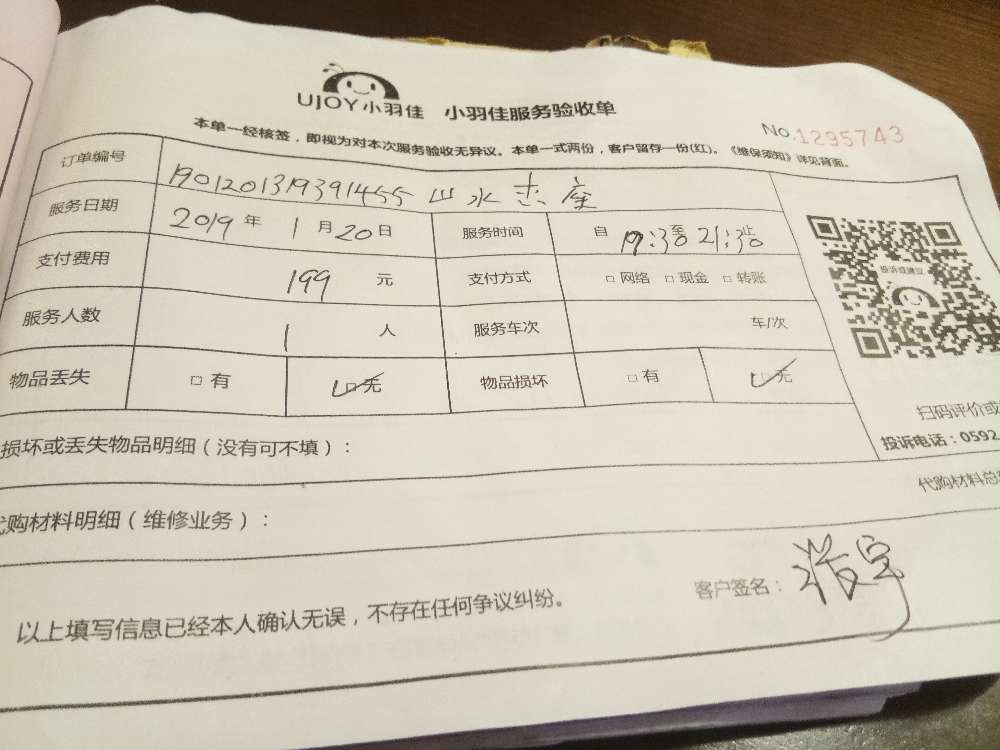 UJOY小羽佳 小羽佳服务验收单
No.1295743
本单一经核签，即视为对本次服务验收无异议。本单一式两份，客户留存一份(红)。《维保须知》详见背面。
订单编号 1901201319391455 山水 座
服务日期 2019 年 1 月 20 日 服务时间 自 19:30 至 21:30 止
支付费用 199 元 支付方式 □ 网络 □ 现金 □ 转账
投诉或建议
服务人数 1 人 服务车次 车/次
物品丢失 □ 有 □ 无 物品损坏 □ 有 □ 无
扫码评价或
投诉电话：0592
损坏或丢失物品明细（没有可不填）：
代购材料总
代购材料明细（维修业务）：
以上填写信息已经本人确认无误，不存在任何争议纠纷。 客户签名：